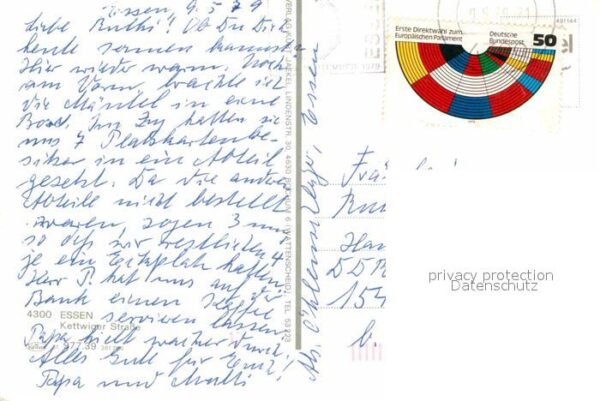 Essen, 9.5.79
Liebe Ruthi! Ob Du Dich
heute sonnen kannst?
Hier wieder warm. Noch
am Vorm. brachte ich
die Mäntel in eine
Box. Im Zug hatten sie
uns 7 Platzkartenbe-
sitzer in ein Abteil
gesetzt. Da die anderen
Abteile nicht bestellt
waren, zogen 3 um
so daß wir restlichen 4
je ein Eckplatz hatten.
Herr P. hat uns auf der
Bank einen Kaffee
servieren lassen
Papa hielt wacker durch.
Alles Gute für Euch!
Papa und Mutti
4300 ESSEN
Kettwiger Straße
977.39
LINDENSTR. 30 4630 BOCHUM 6 (WATTENSCHEID), TEL. 53223
Abs. Essen
Erste Direktwahl zum
Europäischen Parlament
Deutsche
Bundespost
50
1979
DDR
154
privacy protection
Datenschutz